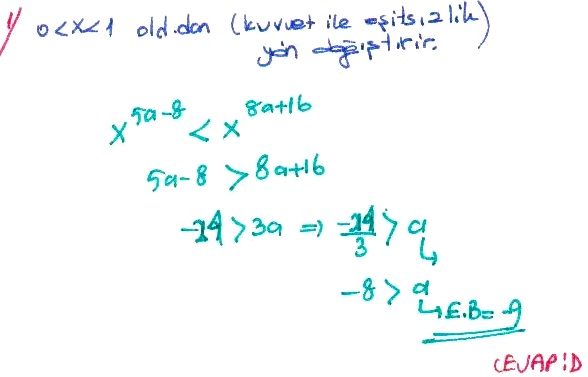 1) 0<x<1 old.dan (kuvvet ile eşitsizlik
yön değiştirir.)
x^5a-8 < x^8a+16
5a-8 > 8a+16
-24 > 3a ⇒ -24/3 > a
-8 > a
↳ E.B = -9
CEVAP: D